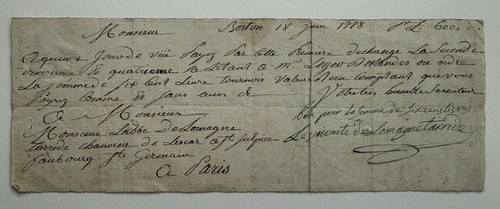 Monsieur Boston 18 juin 1778 Pr £ 600
A quinze Jour de vüe Payez Par cette Premiere dechange La Seconde
troisieme et quatrieme ne Letant a Mr ou ordre
La Somme de Six Cent Livre tournois Valeur Reçu Comptant que vous
Passez Comme Sans avis de Votre tres humble Serviteur
A Monsieur bon pour la Somme de Six cent livres
Monsieur Labbé De Lomagne
tarride chanoine de Lescar a St Sulpice Le vicomte de Lomagne tarride
faubourg St Germain
a Paris